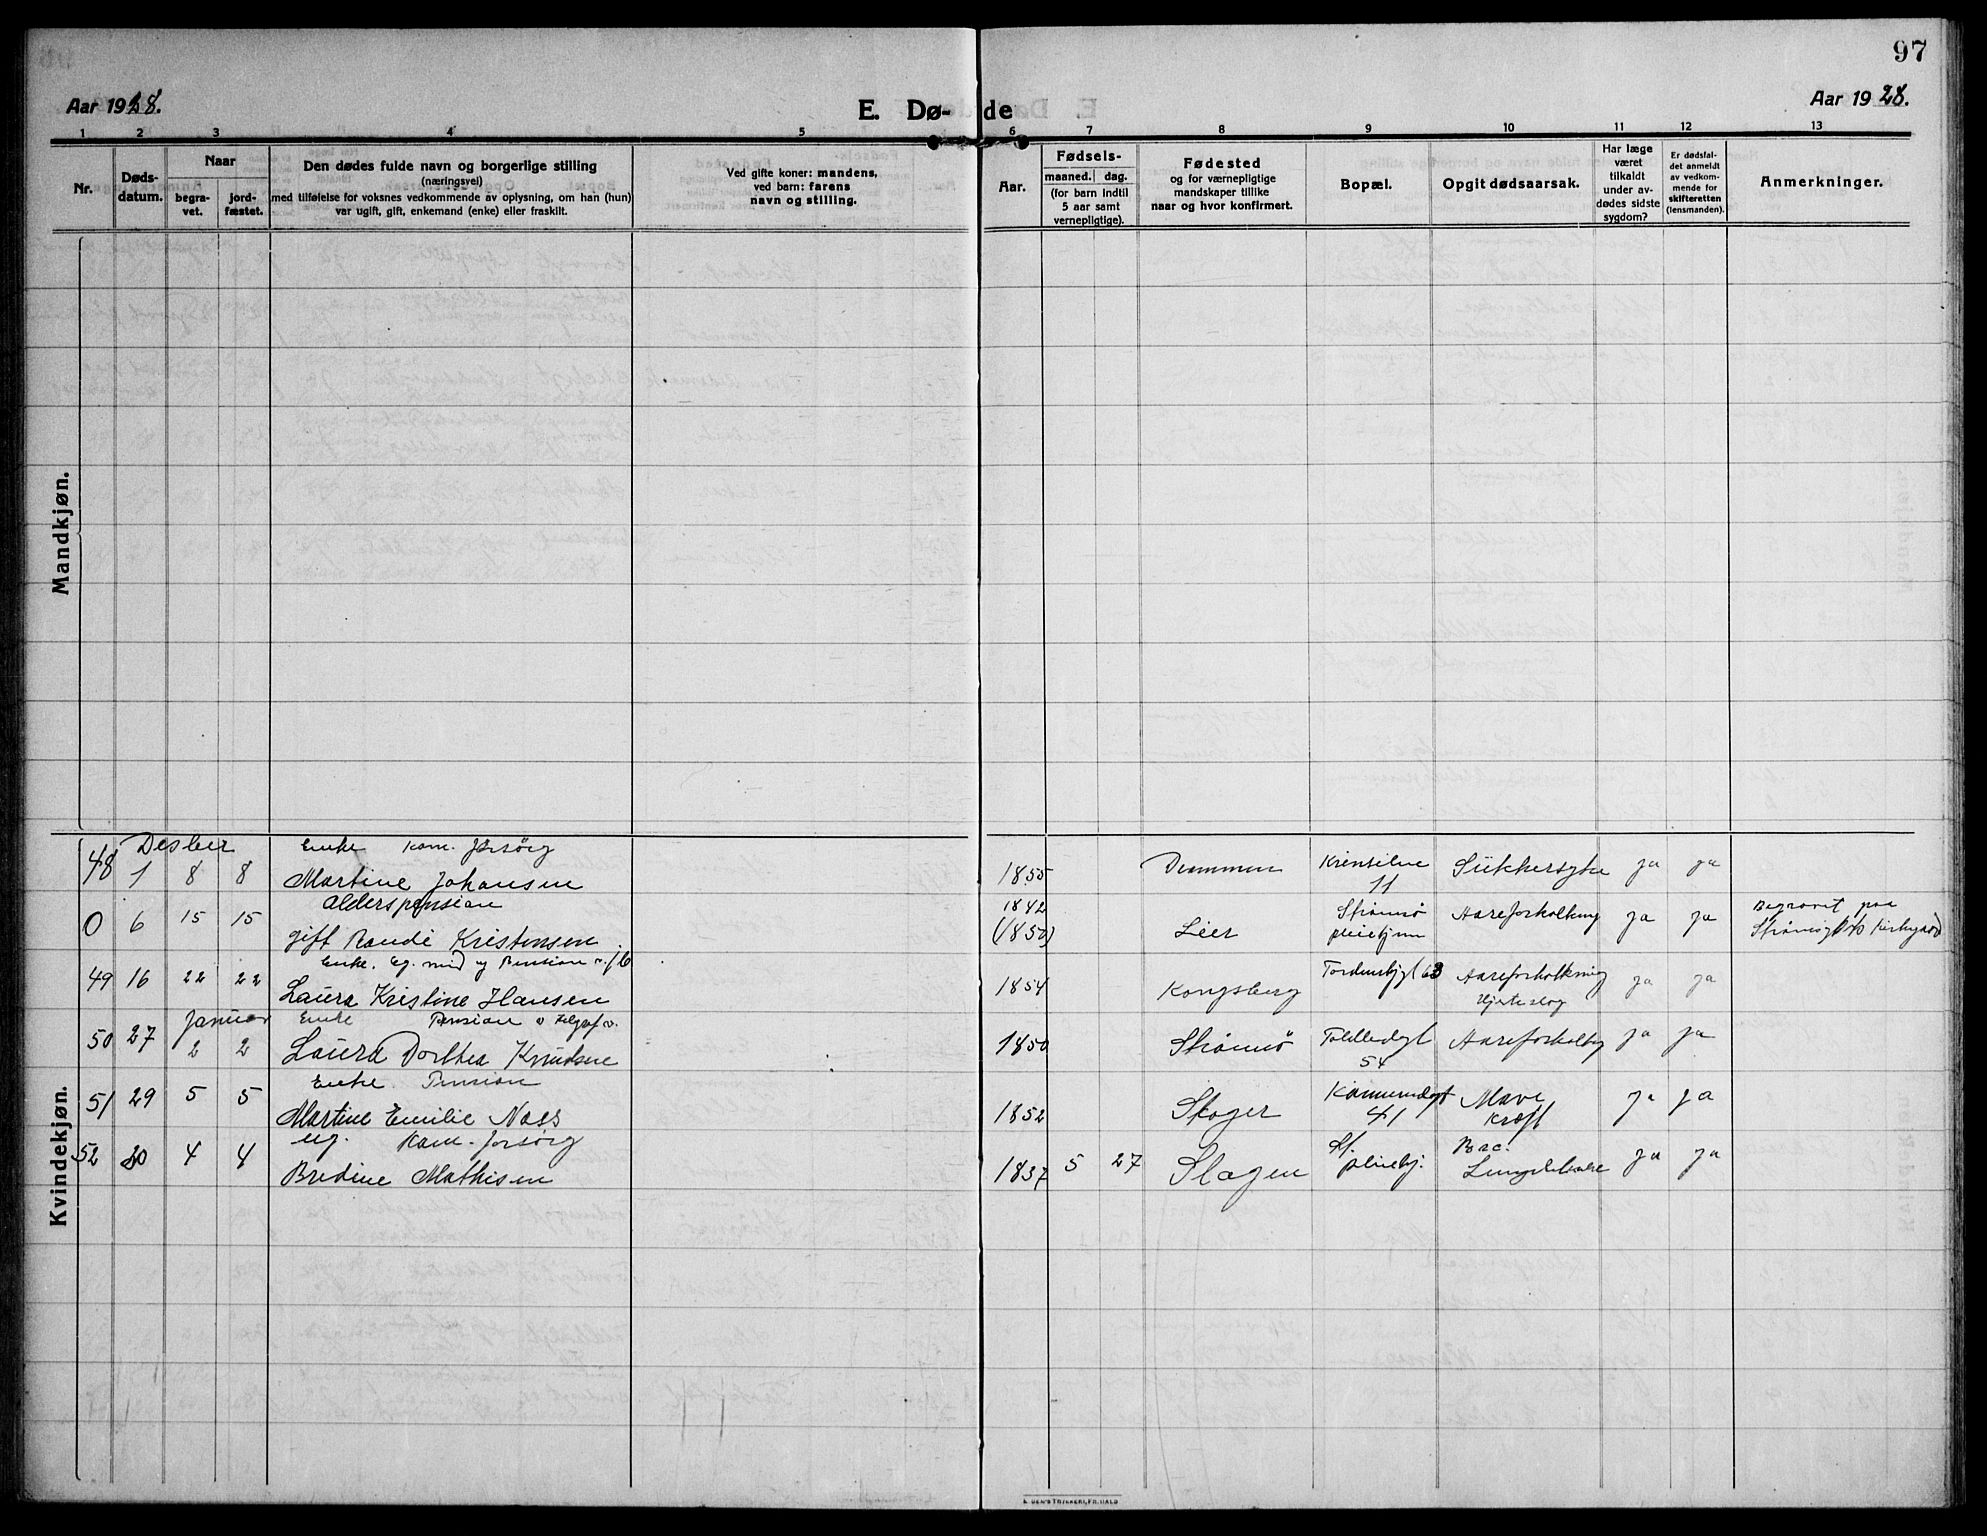 97
Aar 1928.
E. Dø-
de
Aar 1928.
1 2 3 4 5 6 7 8 9 10 11 12 13
Nr.
Døds-
datum.
Naar
begra-
vet.
jord-
fæstet.
Den dødes fulde navn og borgerlige stilling
(næringsvei)
med tilføielse for voksnes vedkommende av oplysning, om han (hun)
var ugift, gift, enkemand (enke) eller fraskilt.
Ved gifte koner: mandens,
ved barn: farens
navn og stilling.
Aar.
Fødsels-
maaned. dag.
(for barn indtil
5 aar samt
vernepligtige).
Fødested
og for værnepligtige
mandskaper tillike
naar og hvor konfirmert.
Bopæl.
Opgit dødsaarsak.
Har læge
været
tilkaldt
under av-
dødes sidste
sygdom?
Er dødsfal-
det anmeldt
av vedkom-
mende for
skifteretten
(lensmanden).
Anmerkninger.
Mandkjøn.
Kvindekjøn.
Desber
Enke Kom. forsörg
48 1 8 8 Martine Johansen 1855 Drammen 11 Sukkersyke ja ja
Alderspension
0 6 15 15 gift Randi Kristensen 1842 (1850) Lier Strømsø Aareforkalkng ja ja Begravet paa
Enke. Eg. mid og Pension
49 16 22 22 Laura Kristine Hansen 1854 Kongsberg Aareforkalkning ja ja
Hjerteslag
Januar
Enke Pension
50 27 2 2 Laura Dorthea Knudsen 1850 Strømsø 54 Aareforkalkg ja ja
Enke. Pension
51 29 5 5 Martine Emilie Næss 1852 Skoger 41 Mave ja ja
Kræft
ug. Kom. forsörg
52 30 4 4 Bredine Mathisen 1837 5 27 Slagen pleiehj. ja ja